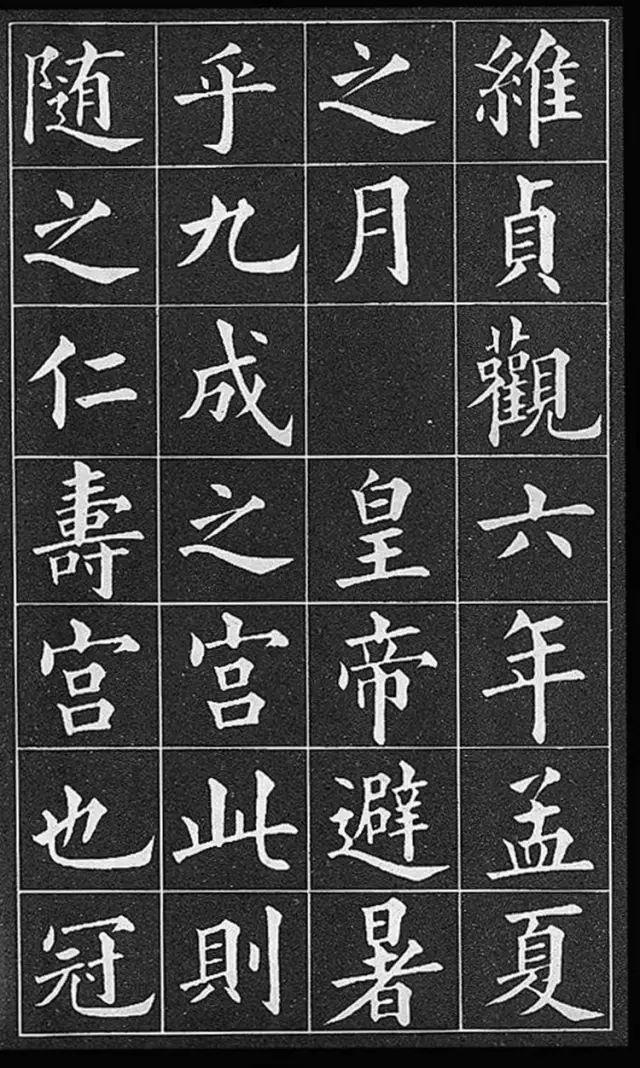 維貞觀六年孟夏
之月 皇帝避暑
乎九成之宮此則
隨之仁壽宮也冠